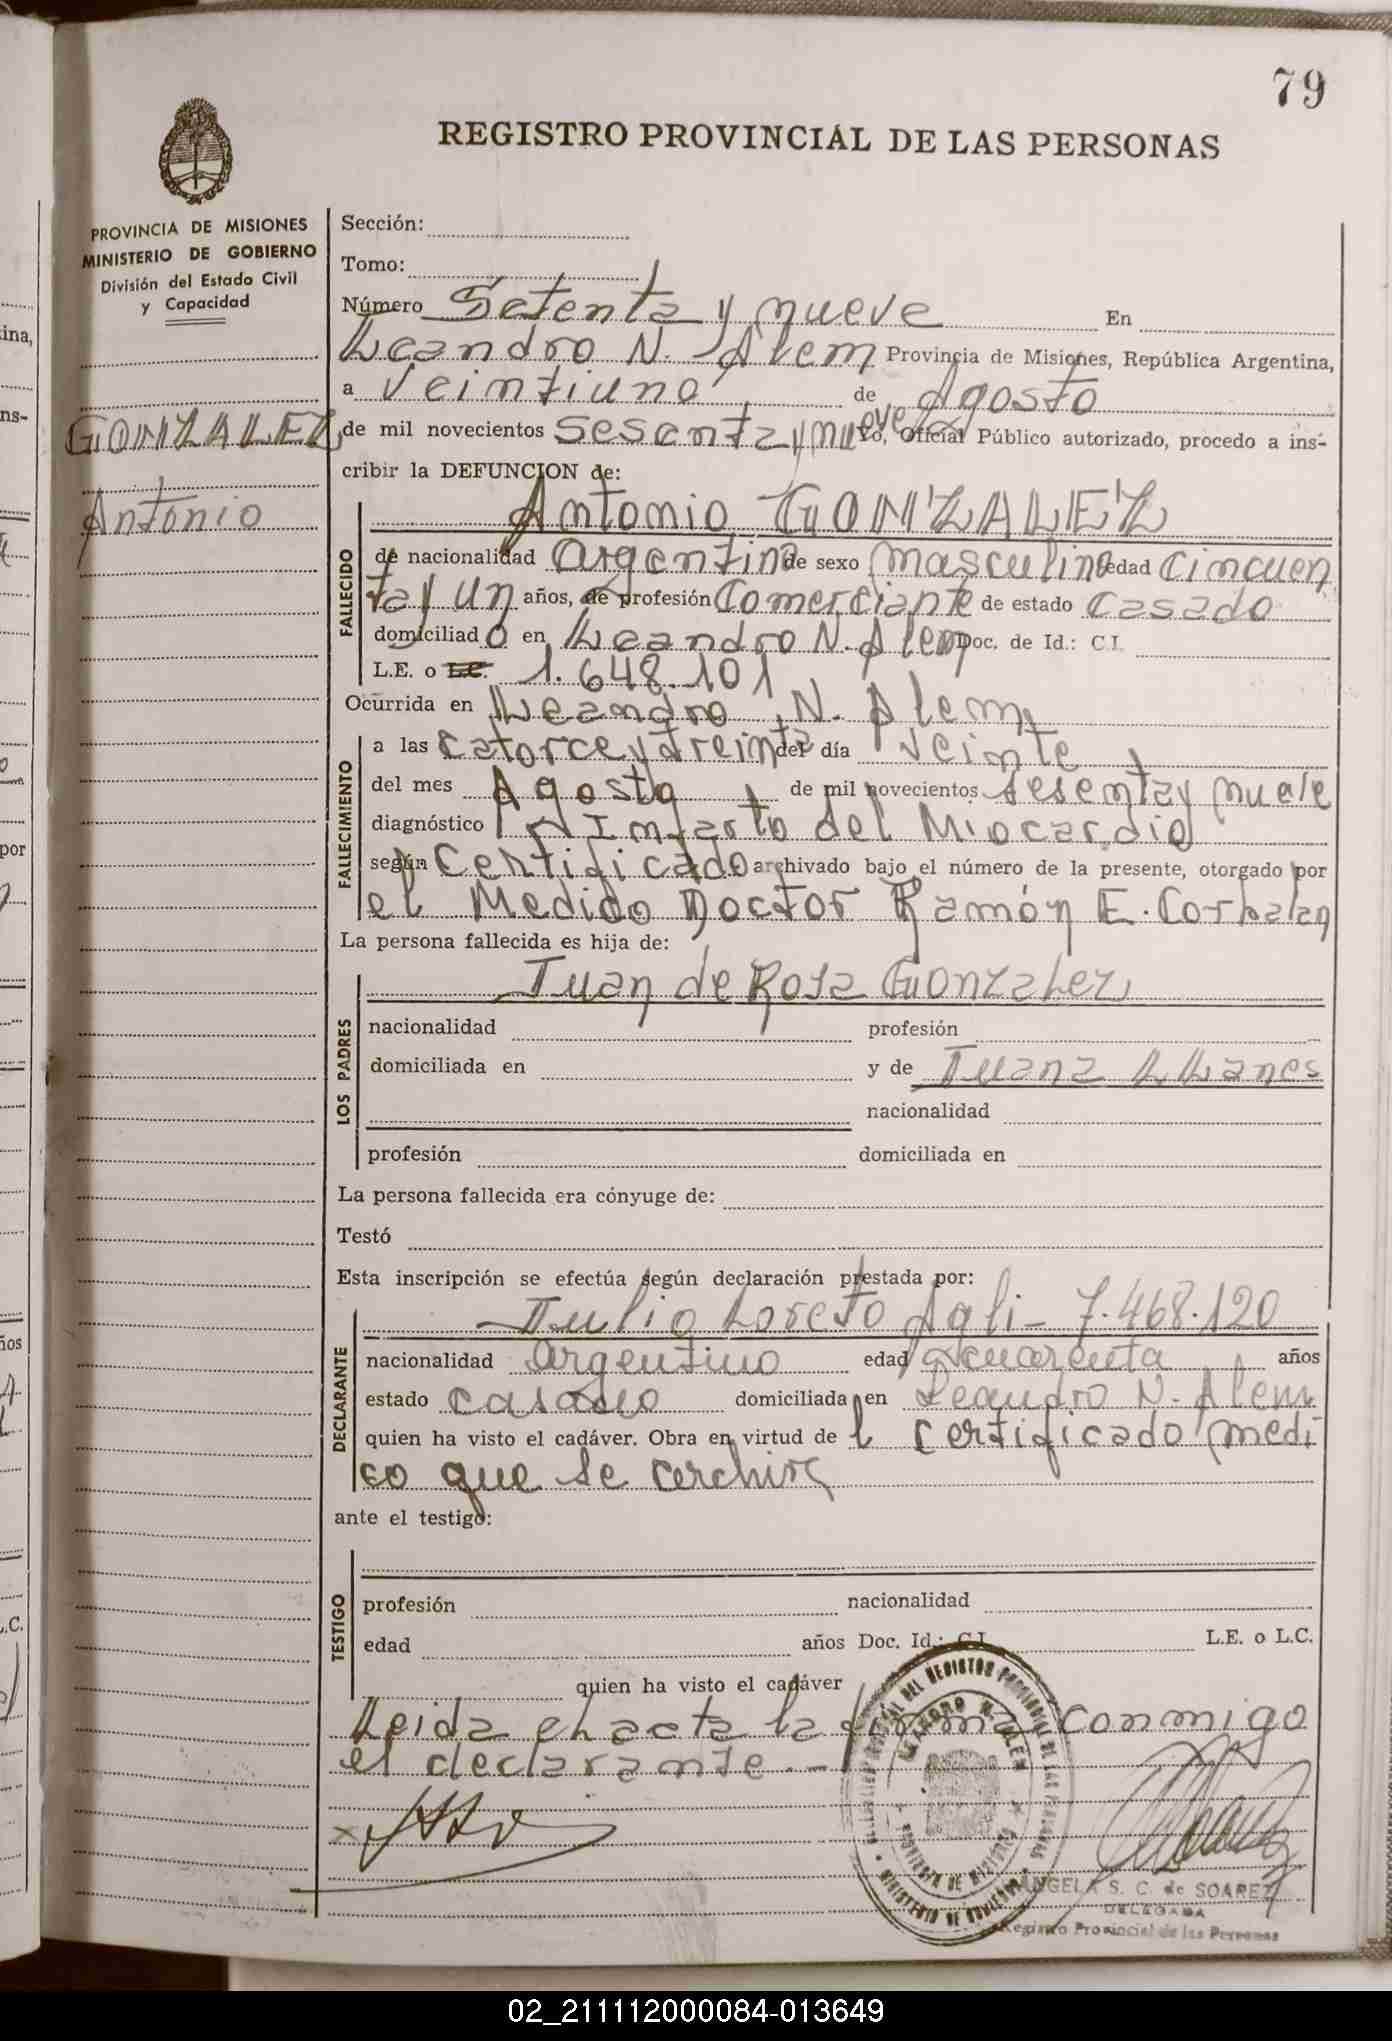 79
REGISTRO PROVINCIAL DE LAS PERSONAS
PROVINCIA DE MISIONES
MINISTERIO DE GOBIERNO
División del Estado Civil
y Capacidad
GONZALEZ
Antonio
Sección:
Tomo:
Número Setenta y nueve En
Leandro N. Alem Provincia de Misiones, República Argentina,
a veintiuno de Agosto
de mil novecientos sesenta y nueve Yo, Oficial Público autorizado, procedo a ins-
cribir la DEFUNCION de:
FALLECIDO
Antonio GONZALEZ
de nacionalidad argentina de sexo masculino edad cincuen
ta y un años, de profesión Comerciante de estado casado
domiciliado en Leandro N. Alem Doc. de Id.: C.I.
L.E. o L.C. 1.648.101
Ocurrida en Leandro N. Alem
FALLECIMIENTO
a las catorce y treinta del día veinte
del mes Agosto de mil novecientos sesenta y nueve
diagnóstico Infarto del Miocardio
según certificado archivado bajo el número de la presente, otorgado por
el Medido Doctor Ramón E. Corbalan
La persona fallecida es hija de:
LOS PADRES
Juan de Rosa Gonzalez
nacionalidad profesión
domiciliada en y de Juana LLanes
nacionalidad
profesión domiciliada en
La persona fallecida era cónyuge de:
Testó
Esta inscripción se efectúa según declaración prestada por:
DECLARANTE
Julio Loreto Agli - 7.468.120
nacionalidad argentino edad cuarenta años
estado casado domiciliada en Leandro N. Alem
quien ha visto el cadáver. Obra en virtud del certificado medi
co que se
ante el testigo:
TESTIGO
profesión nacionalidad
edad años Doc. Id.: C.I. L.E. o L.C.
quien ha visto el cadáver
Leida en acta la firma conmigo
el declarante.-
LEANDRO N. ALEM
PROVINCIA DE MISIONES
MINISTERIO DE GOBIERNO
ANGELA S. C. de SOAREZ
DELEGADA
Registro Provincial de las Personas
02_211112000084-013649